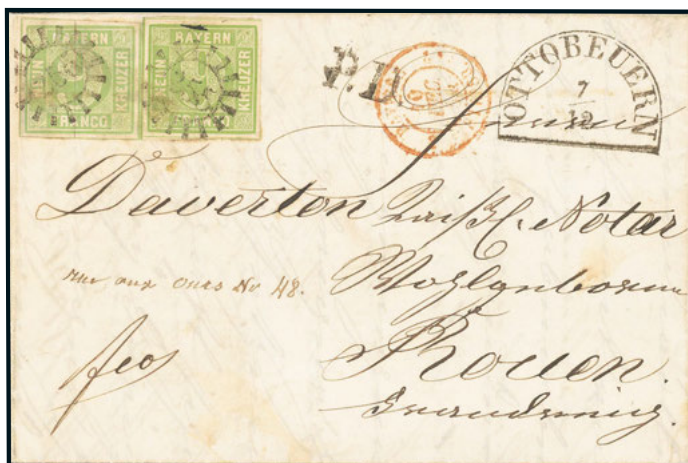 BAYERN
NEUN
KREUZER
FRANCO
BAYERN
NEUN
KREUZER
FRANCO
P.D.
OTTOBEUERN
7
12
Daverton
Notar
rue aux ours No 48.
Wohlgeboren
fco
Rouen.